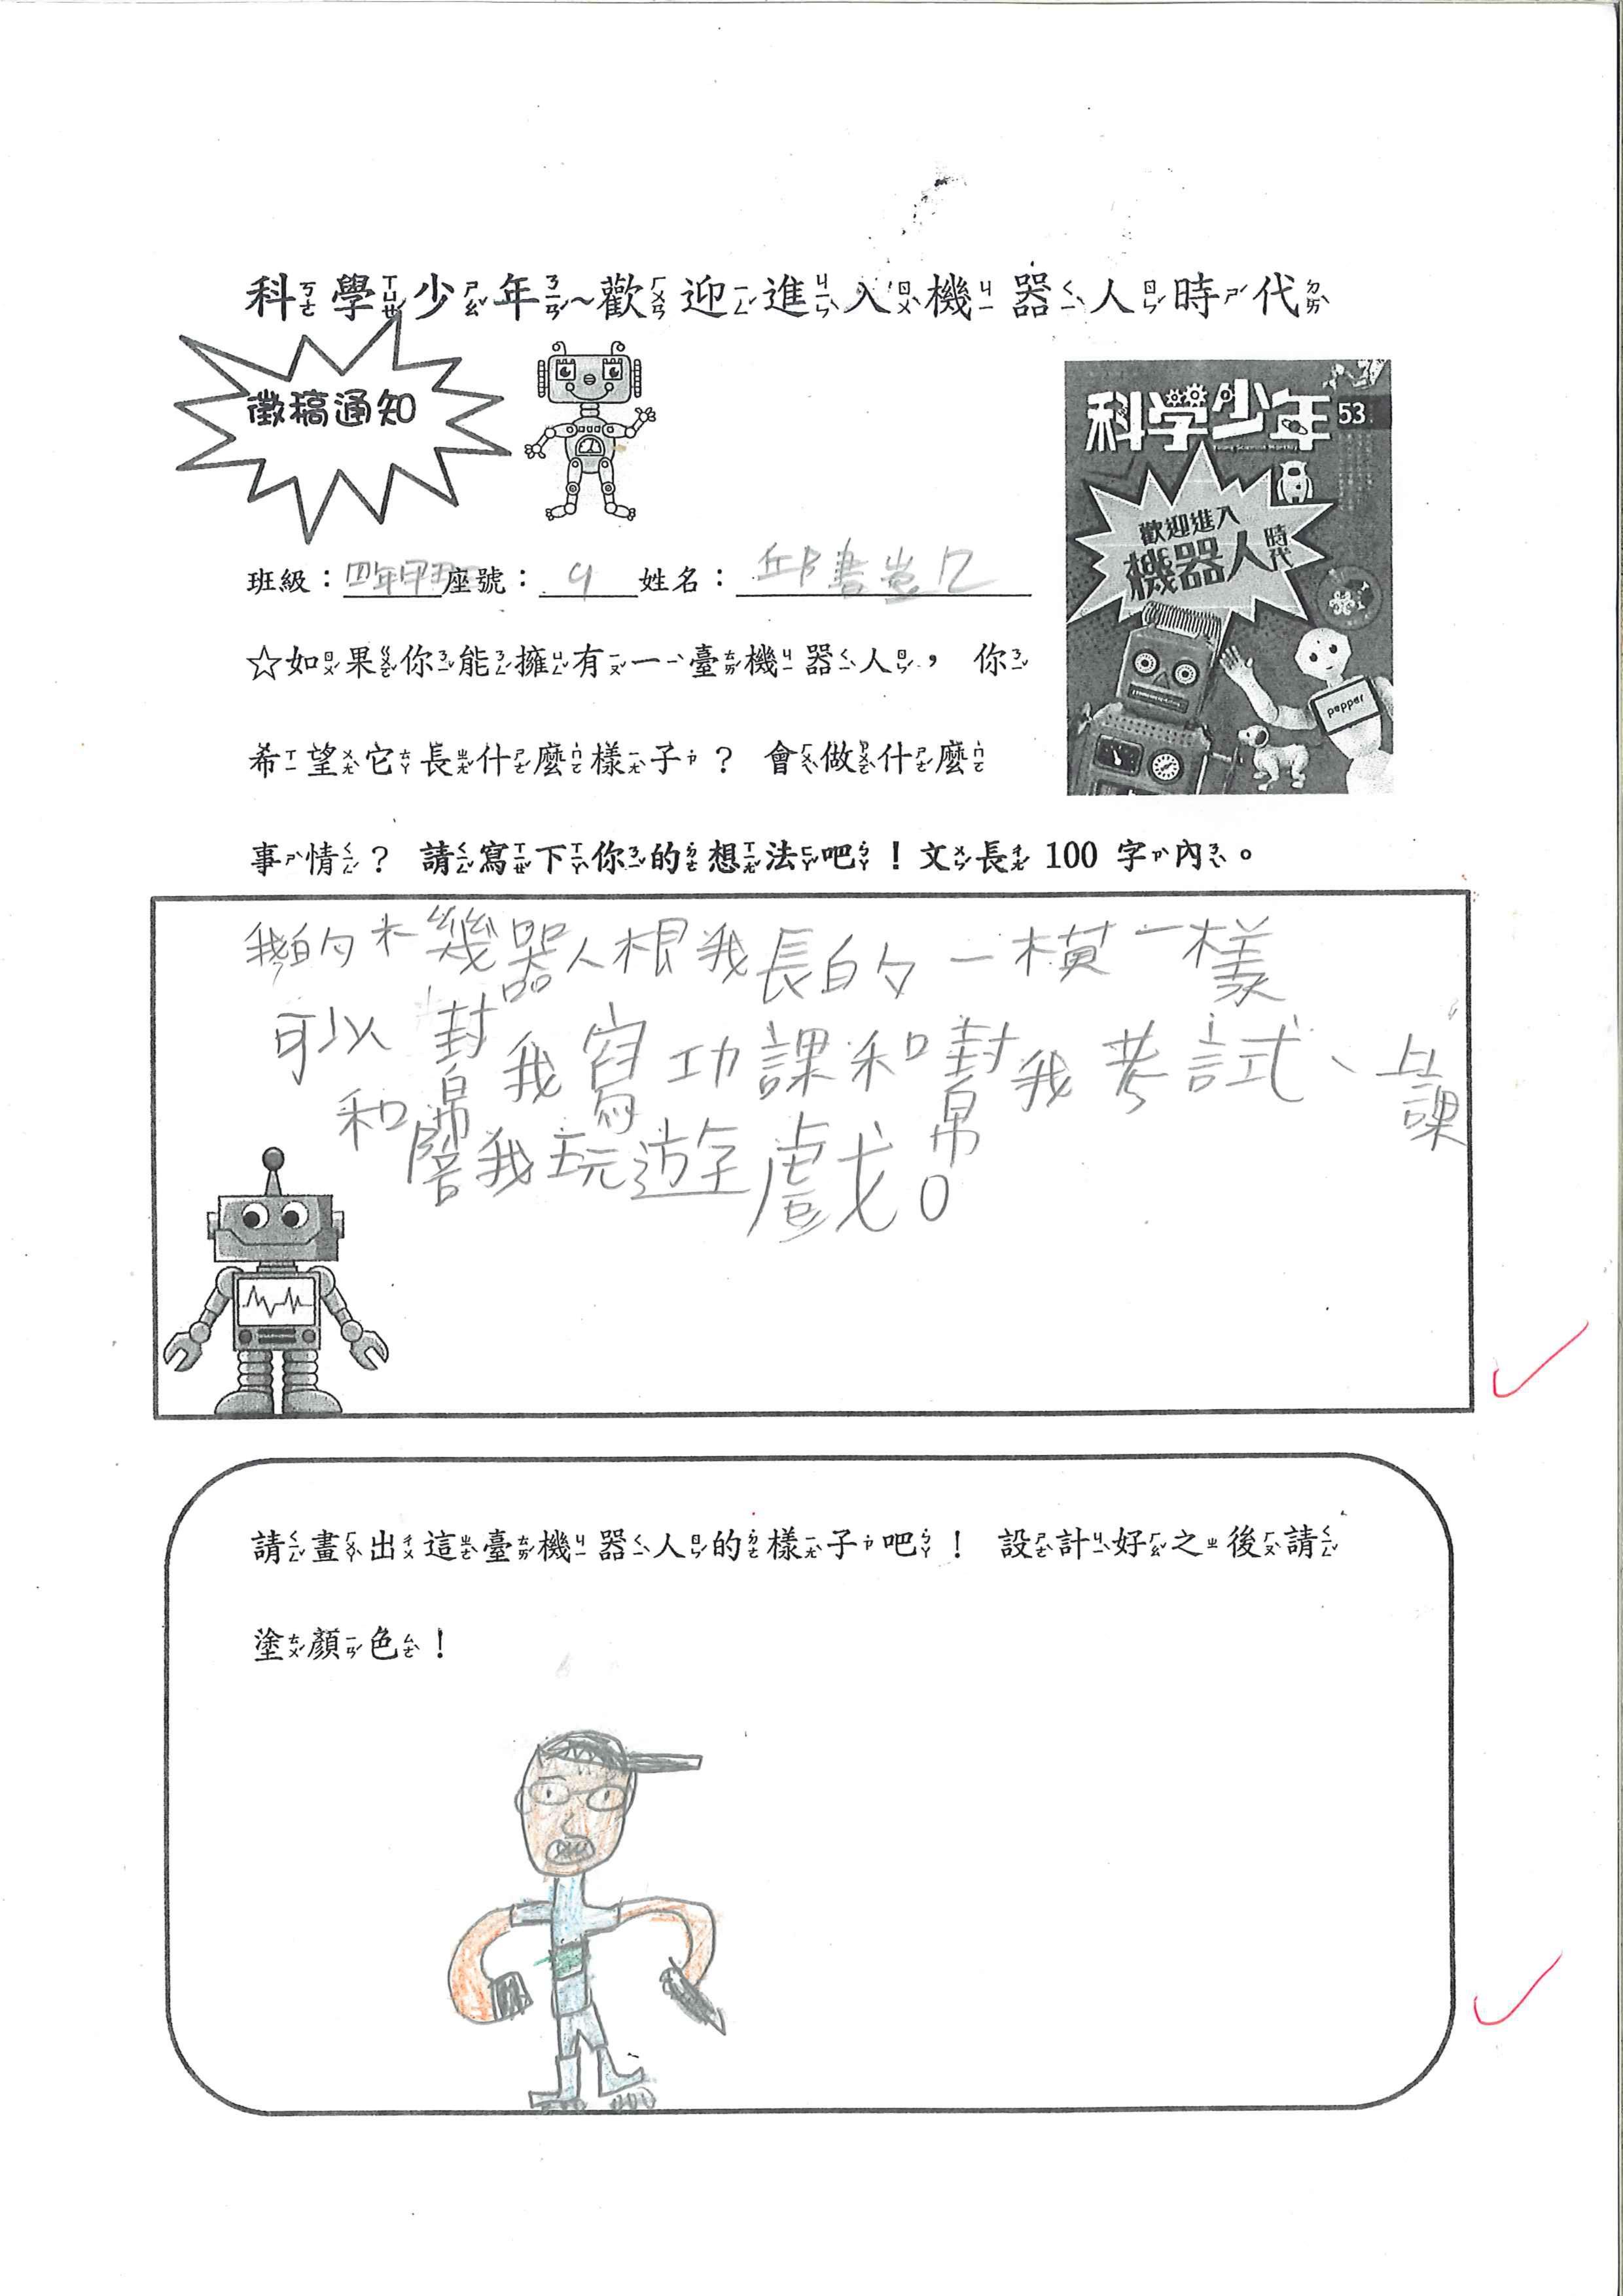 科學少年~歡迎進入機器人時代
徵稿通知
科学少年 53
歡迎進入
機器人時代
pepper
班級：四年甲 座號：9 姓名：邱書
☆如果你能擁有一臺機器人，你
希望它長什麼樣子？會做什麼
事情？請寫下你的想法吧！文長 100 字內。
我的機器人根我長的一模一樣
可以幫我寫功課和幫我考試、上課
和陪我玩遊戲。
請畫出這臺機器人的樣子吧！設計好之後請
塗顏色！